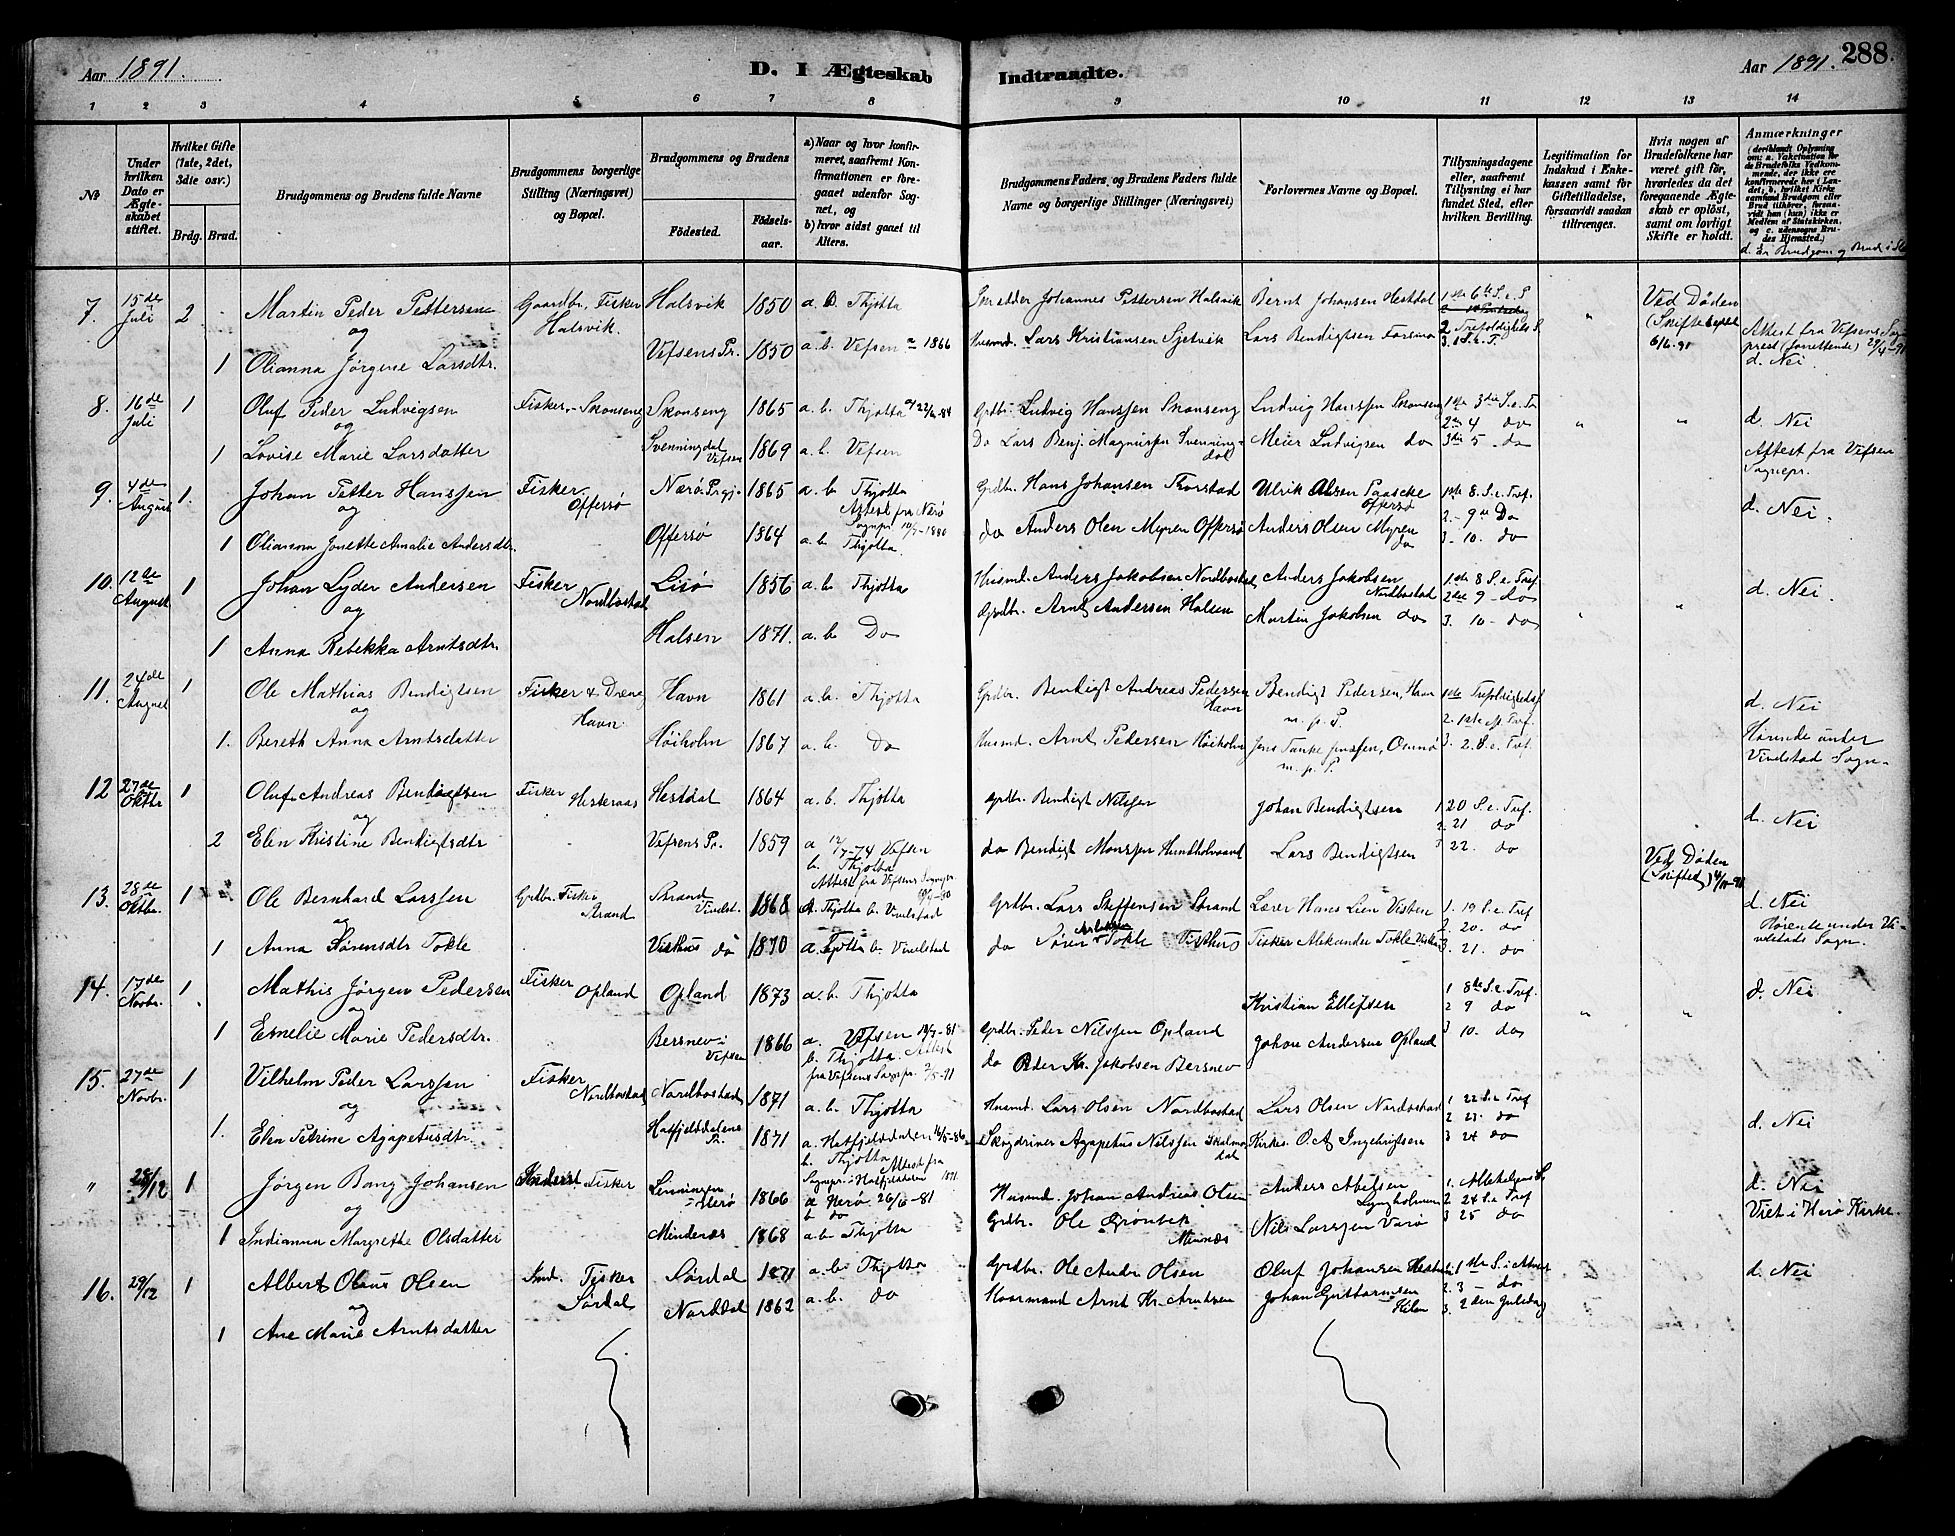 Aar 1891.
D. I Ægteskab Indtraadte.
Aar 1891. 288.
1 2 3 4 5 6 7 8 9 10 11 12 13 14
№
Under hvilken Dato er Ægteskabet stiftet.
Hvilket Gifte (1ste, 2det, 3die osv.)
Brdg. Brud.
Brudgommens og Brudens fulde Navne
Brudgommens borgerlige Stilling (Næringsvei) og Bopæl.
Brudgommens og Brudens
Fødested. Fødselsaar.
a) Naar og hvor konfirmeret, saafremt Konfirmationen er foregaaet udenfor Sognet, og
b) hvor sidst gaaet til Alters.
Brudgommens Faders og Brudens Faders fulde Navne og borgerlige Stillinger (Næringsvei)
Forlovernes Navne og Bopæl.
Tillysningsdagene eller, saafremt Tillysning ei har fundet Sted, efter hvilken Bevilling.
Legitimation for Indskud i Enkekassen samt for Giftetilladelse, forsaavidt saadan tiltrænges.
Hvis nogen af Brudefolkene har været gift før, hvorledes da det foregaaende Ægteskab er opløst, samt om lovligt Skifte er holdt.
Anmærkninger (deriblandt Oplysning om: a. Vakcination for de Brudefolks Vedkommende, der ikke ere konfirmerede her i Landet; b. hvilket Kirkesamfund Brudgom eller Brud tilhører, forsaavidt han (hun) ikke er Medlem af Statskirken, og c. udensogns Brudes Hjemsted.)
7. 15de Juli 2 Martin Peder Pettersen Gaardbr. Fisker Halsvik. Halsvik 1850 a. b. Thjøtta Johannes Pettersen Halsvik Bernt Johansen Hestdal Ved Døden
og
1 Olianna Jørgine Larsdtr. Vefsens Pr. 1850 a. b. Vefsen 1866 Husmd. Lars Kristiansen Lars Bendigtsen Forsmo 6/6.91 Attest fra Vefsens Sogneprest 29/4-91
d. Nei
8. 16de Juli 1 Oluf Peder Ludvigsen Fisker, Skonseng Skonseng 1865 a. b. Thjøtta 22/6-84 Grdbr. Ludvig Hanssen Skonseng Ludvig Hanssen Skonseng 1ste 3die S. e. Tr. d. Nei
og 2den 4 do
1 Lovise Marie Larsdatter Svenningdal Vefsen 1869 a. b. Vefsen Do Lars Benj. Magnussen Svenningdal Meier Ludvigsen do 3die 5 do Attest fra Vefsen Sognepr.
9. 4de August 1. Johan Petter Hanssen Fisker, Offersø Nærø Prgj. 1865 a. b. Thjøtta Attest fra Nærø Sognepr. Grdbr. Hans Johansen Torstad Ulrik Olsen Offersø 1ste 8. S. e. Tref. d. Nei.
og 2. 9de Do
1 Olianna Jonette Amalie Andersdtr. Offersø 1864 a. b. Thjøtta. do Anders Olsen Myren Offersø Anders Olsen Myren do 3. 10. do
10. 12te August 1 Johan Lyder Andersen Fisker Nordbostad Lisø 1856 a. b. Thjøtta Husmd. Anders Jakobsen Nordbostad Anders Jakobsen Nordbostad 1ste 8 S. e. Tref. d. Nei.
og 2den 9 do
1 Anna Rebekka Arntsdtr. Halsen 1871. a. b. Do Grdbr. Arnt Andersen Halsen Martin Jakobsen do 3. 10 do
11. 24de August 1 Ole Mathias Bendigtsen Fisker & Dræng Havn Havn 1861 a. b. Thjøtta Grdbr. Bendigt Andreas Pedersen Havn Bendigt Pedersen, Havn m. p. P. 1ste Trefoldighedsf. d. Nei
og 2. 1ste e. Tref.
1. Bereth Anna Arntsdatter Høiholm 1867 a. b. Do Husmd. Arnt Pedersen Høiholm Jens Tanke Jenssen, Omnø m. p. P. 3. 2. S. e. Tref. Hørende under Vivelstad Sogn
12 27de Oktbr 1 Oluf Andreas Bendigtsen Fisker Hesteraas Hestdal 1864 a. b. Thjøtta Grdbr. Bendigt Nilssen Johan Bendigtsen 1. 20 S. e. Tref. d. Nei
og 2. 21 do
2 Elen Kristine Bendigtsdtr Vefsens Pr. 1859 a 12/7-74 Vefsen b. Thjøtta do Bendigt Monssen Hundholvand Lars Bendigtsen 3 22. do Ved Døden
13. 28de Oktbr. 1 Ole Bernhard Larssen Grdbr. Fisker Strand Strand Vivelst. 1868 a. Thjøtta b. Vivelstad Grdbr. Lars Steffensen Strand Lærer Hans Lien Visten 1. 19 S. e. Tref d. Nei
og 2. 20. do
1 Anna Sørensdtr Tokle Visthus do 1870 a. Tjøtta b. Vivelstad do Søren Tokle Visthus Fisker Aleksander Tokle 3. 21. do Hørende under Vivelstads Sogn.
14. 17de Novbr. 1 Mathis Jørgen Pedersen Fisker Opland Opland 1873 a. b. Thjøtta Kristian Ellefsen 1 8de S. e. Tref. d. Nei
og 2 9 do
1 Emelie Marie Pedersdtr. Bersnev i Vefsen 1866 a. Vefsen b. Thjøtta. Attest fra Vefsens Sognepr. Grdbr. Peder Nilssen Opland Johan Andersen Opland 3 10. do
do Peder Kr. Jakobsen Bersnev
15. 27de Novbr. 1 Vilhelm Peder Larssen Fisker Nordbostad Nordbostad 1871 a. b. Thjøtta Husmd. Lars Olsen Nordbostad Lars Olsen Nordbostad 1 22 S. e. Tref
og 2 23. do d. Nei
1. Elen Petrine Agapetusdtr. Hatfjelddalens Pr. 1871 a. Hatfjelddalen b. Thjøtta Agapetus Nilssen Kirkes. O. A. Ingebrigtsen 3 24 do
" 28/12 1 Jørgen Bang Johansen Fisker Herø 1866 a Herø 26/6-81 b do Husmd. Johan Andreas Olsen Anders Abelsen 1. Allehelgens S. d. Nei
og 2. 24 S. e. Tref
1 Indianna Margrethe Olsdatter Mindenæs 1868 a. b. Thjøtta Grdbr. Ole Grønbek Nils Larssen 3 25 do Viet i Herø Kirke.
16. 29/12 1 Albert Olaus Olsen Fisker Sørdal Sørdal 1871 a. b. Thjøtta Grdbr. Ole Andr. Olsen Oluf Johansen 1ste S. i Advent d. Nei
og 2. 3 do
1 Ane Marie Arntsdatter Norddal 1862 a. b. do Arnt Kr. Arntsen Johan 3. 2den Juledag